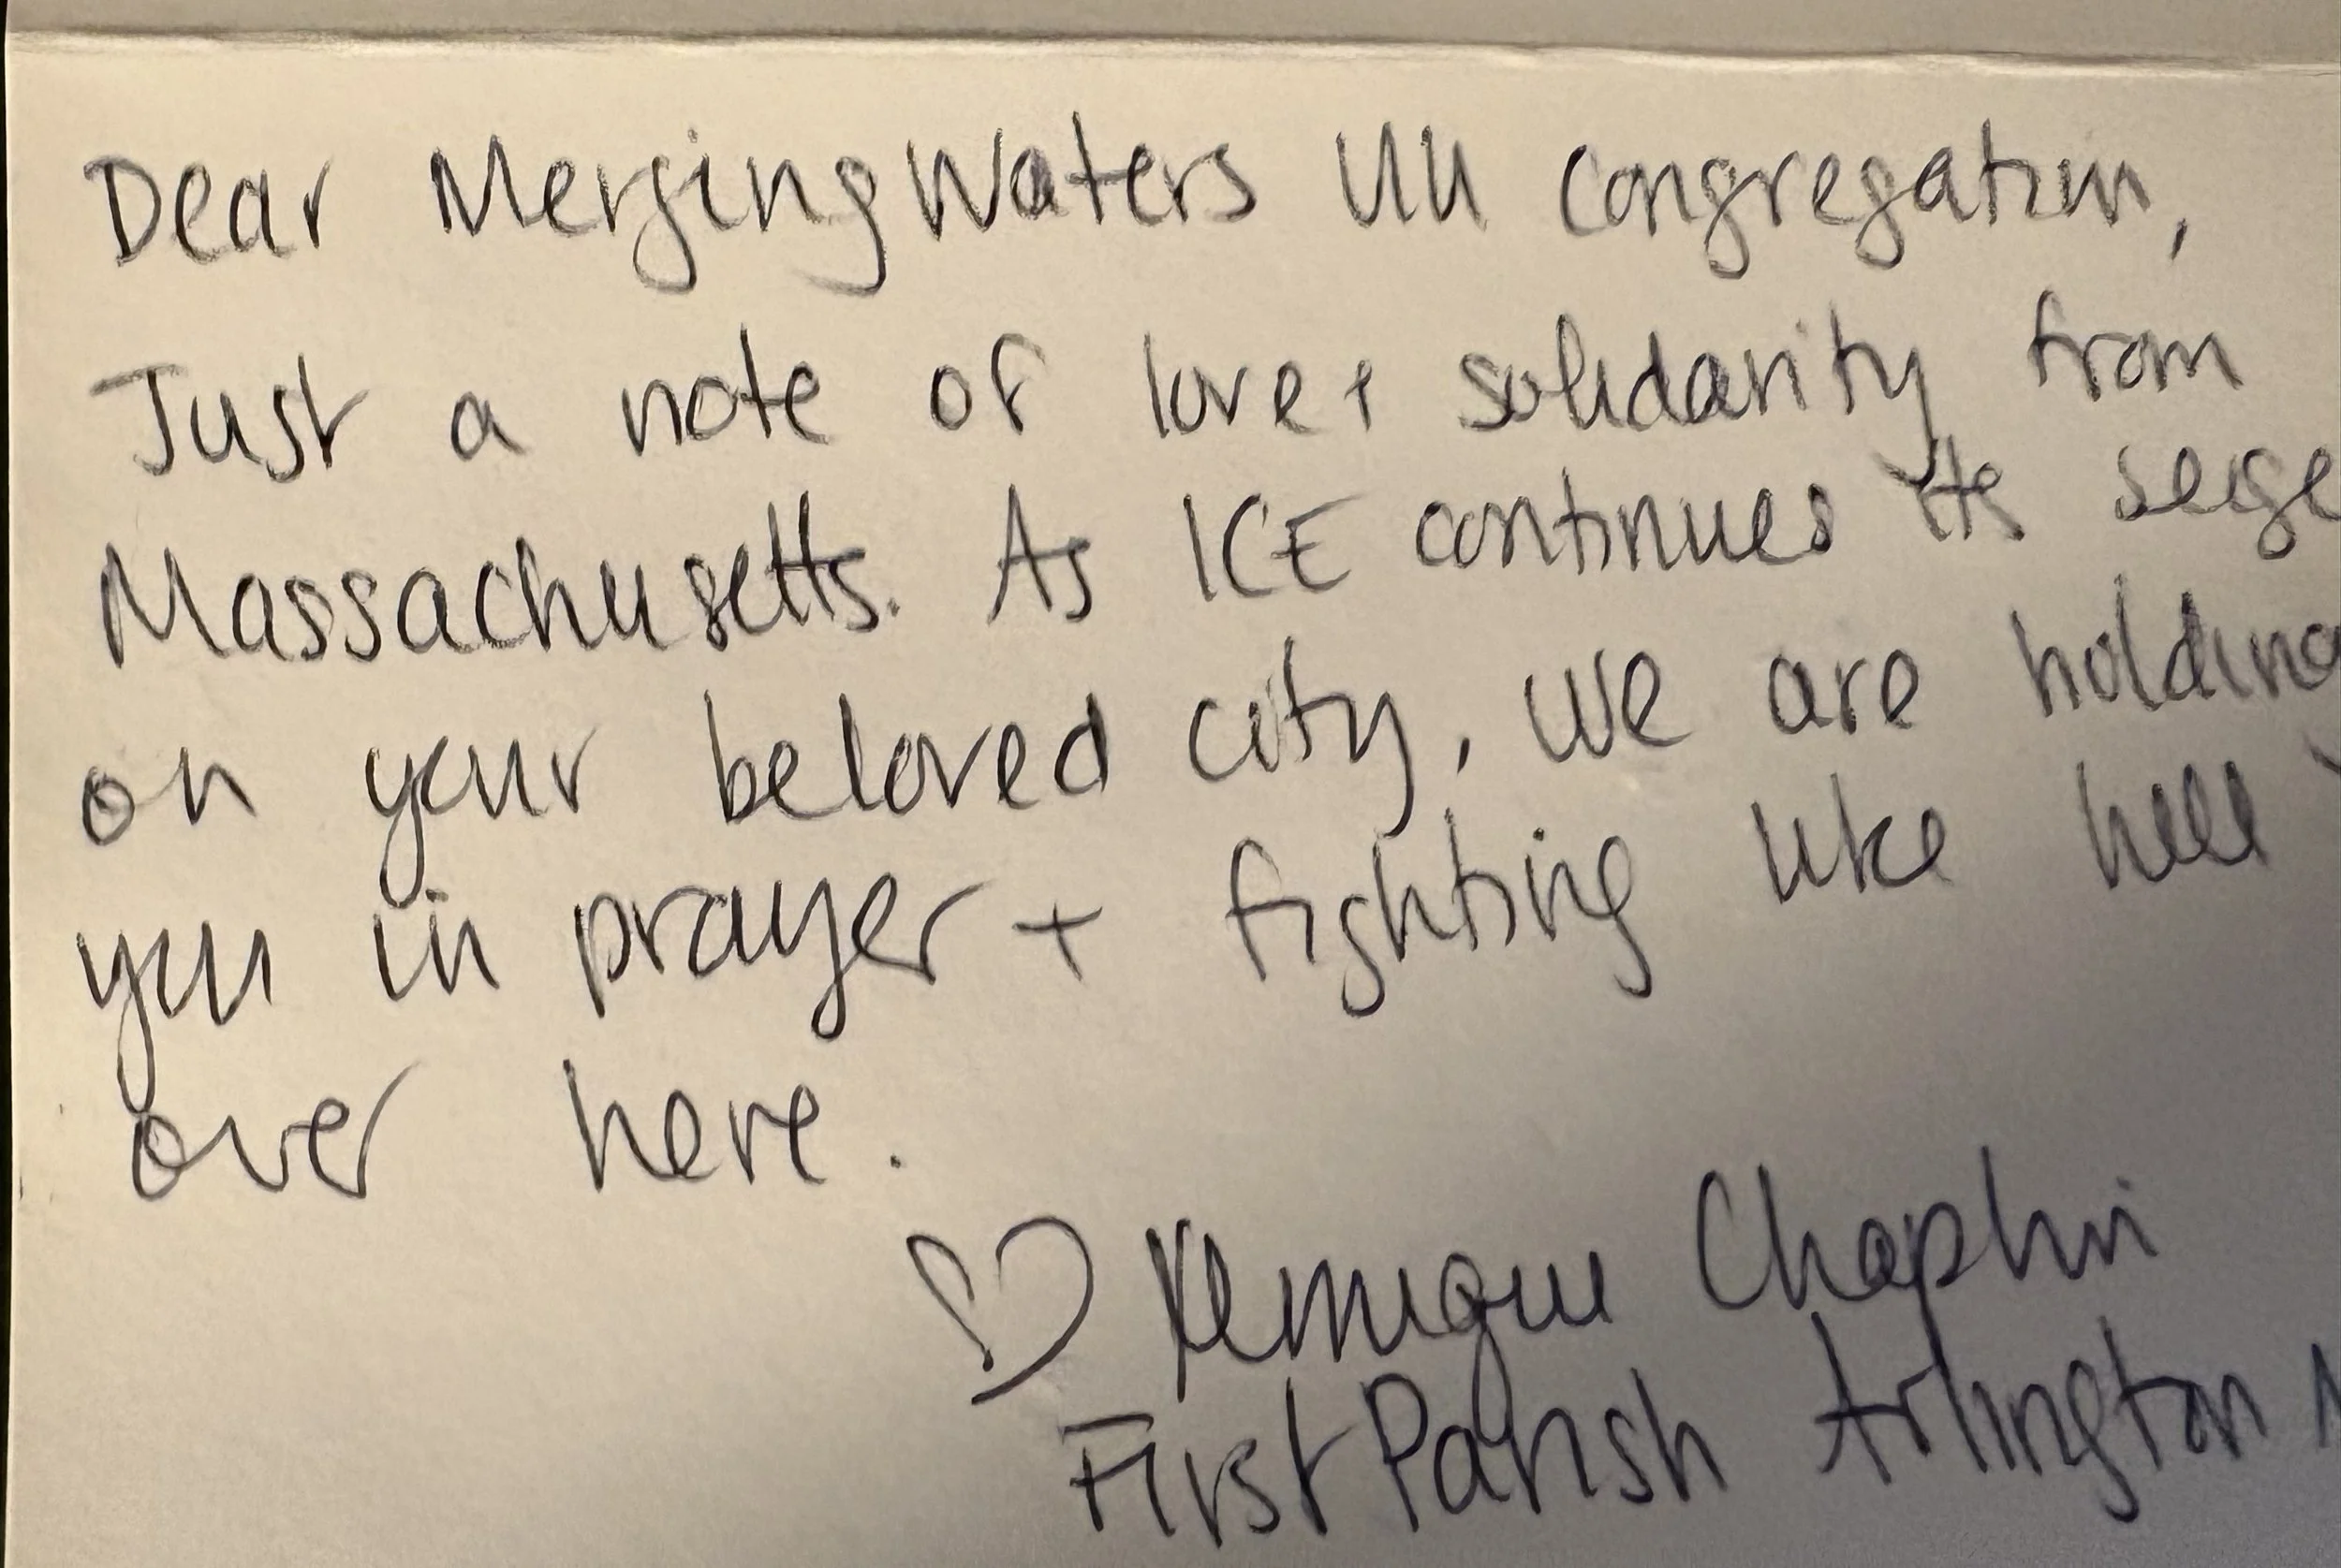 Dear Merging Waters UU congregation,
Just a note of love + solidarity from
Massachusetts. As ICE continues its seige
on your beloved city, we are holding
you in prayer + fighting like hell
over here.
♡ Chaplin
First Parish Arlington